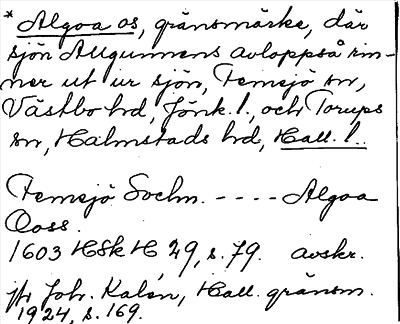 * Algoa os, gränsmärke, där
sjön Allgunnens avloppså rin-
ner ut ur sjön, Femsjö sn,
Västbo hd, Jönk. l., och Torups
sn, Halmstads hd, Hall. l..
Femsjö Sochn. - - - - Algoa
Ooss.
1603 HSk H, 29, s. 79. avskr.
jfr Joh. Kalén, Hall. gränsm.
1924, s. 169.